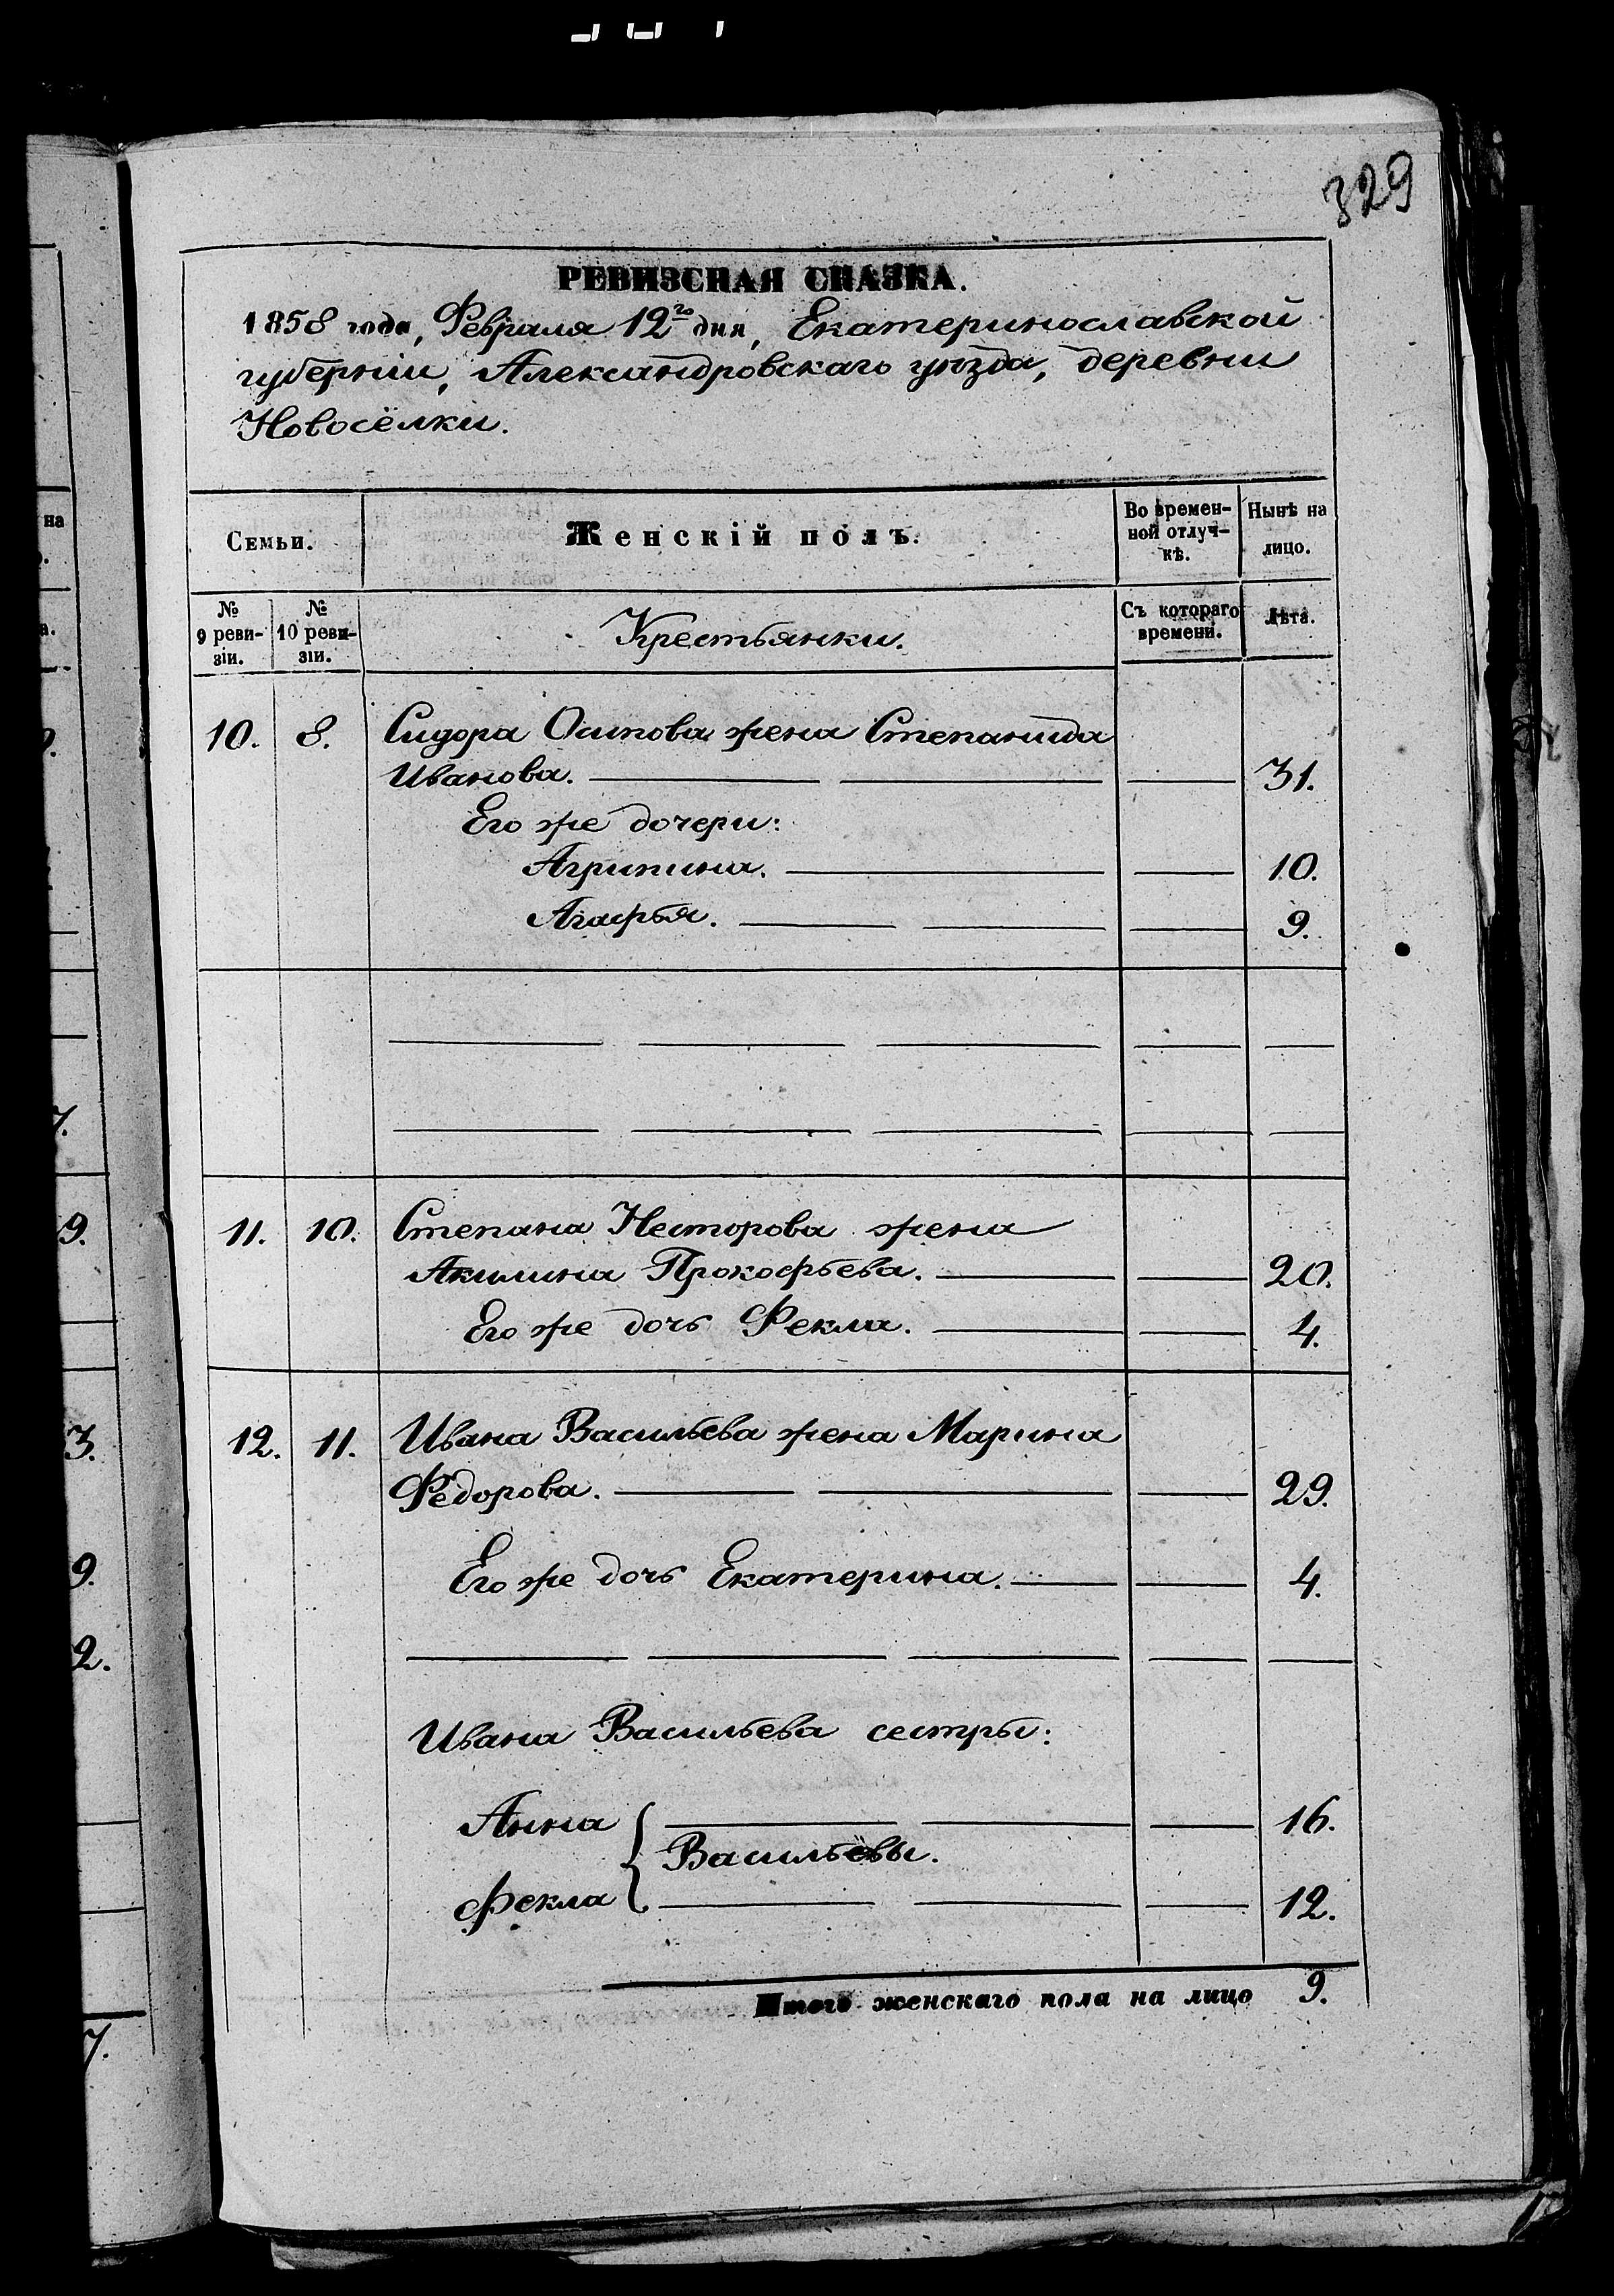 329
РЕВИЗСКАЯ СКАЗКА.
1858 года, Февраля 12го дня, Екатеринославской
губерніи, Александровскаго уѣзда, деревни
Новосёлки.
Семьи.
Женскій полъ.
Во времен-
ной отлуч-
кѣ.
Нынѣ на
лицо.
№
9 реви-
зіи.
№
10 реви-
зіи.
Крестьянки.
Съ котораго
времени.
Лѣта.
10. 8. Сидора Осипова жена Степанида
Иванова. 31.
Его же дочери:
Агрипина. 10.
Агафья. 9.
11. 10. Степана Несторова жена
Акилина Прокофьева. 20.
Его же дочь Фекла. 4.
12. 11. Ивана Васильева жена Марина
Федорова. 29.
Его же дочь Екатерина. 4.
Ивана Васильева сестры:
Анна 16.
Васильевы.
Фекла 12.
Итого женскаго пола на лицо 9.
на
9.
3.
9.
2.
7.